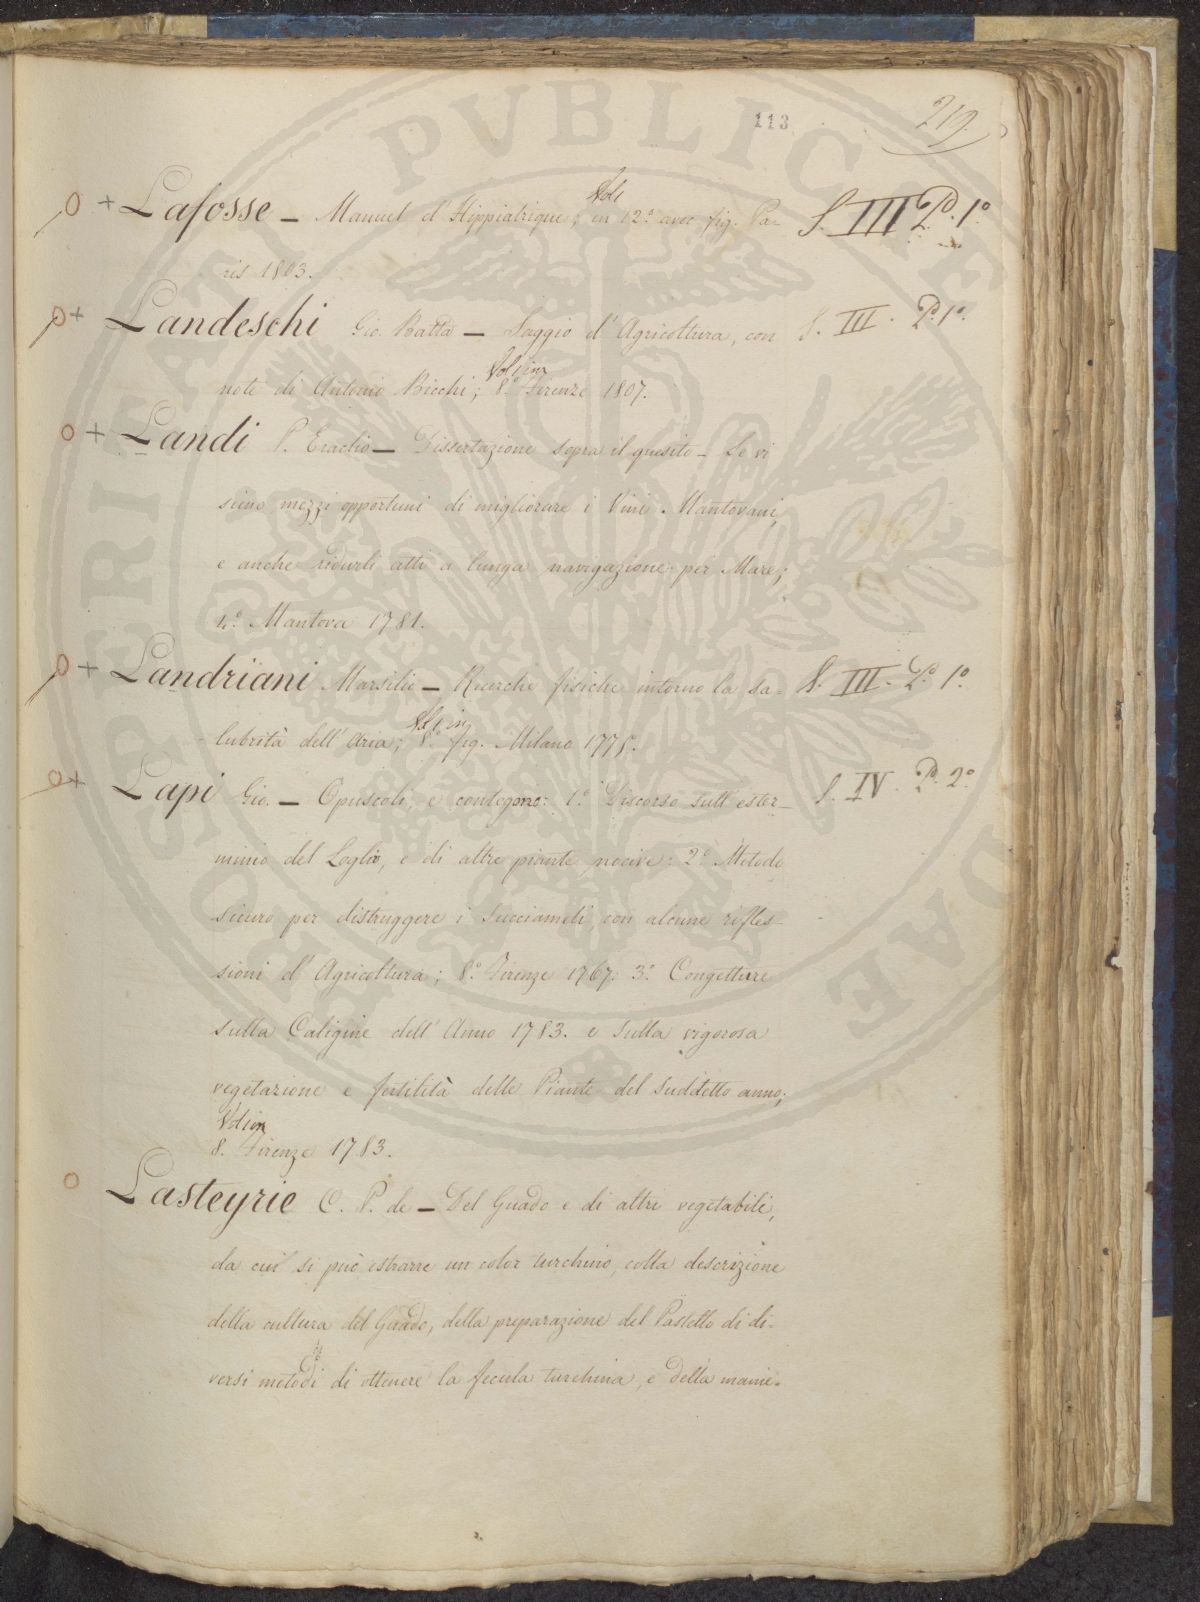 113
219.
Lafosse – Manuel d'Hippiatrique; Vol 1 in 12.º avec fig. Pa- S. III P.º 1º
ris 1803.
Landeschi Gio. Batta – Saggio d'Agricoltura, con S. III. P.º 1º.
note di Antonio Bicchi; Vol 1 in 8.º Firenze 1807.
Landi P. Eraclio – Dissertazione sopra il quesito – Se vi
sieno mezzi opportuni di migliorare i Vini Mantovani,
e anche ridurli atti a lunga navigazione per Mare;
4.º Mantova 1781.
Landriani Marsilio – Ricerche fisiche intorno la sa- S. III. P.º 1º.
lubrità dell'Aria; Vol 1 in 8.º fig. Milano 1775.
Lapi Gio. – Opuscoli, e contegono: 1.º Discorso sull'ester- S. IV. P. 2.º
minio del Loglio, e di altre piante nocive: 2.º Metodo
sicuro per distruggere i Succiameli, con alcune rifles-
sioni d'Agricoltura; 8.º Firenze 1767: 3.º Congetture
sulla Caligine dell'Anno 1783. e sulla vigorosa
vegetazione e fertilità delle Piante del suddetto anno;
Vol in
8. Firenze 1783.
Lasteyrie C. P. de – Del Guado e di altri vegetabili,
da cui si può estrarre un color turchino, colla descrizione
della cultura del Guado, della preparazione del Pastello di di-
versi metodi di ottenere la fecula turchina, e della manie-
PROSPERITATI PVBLICAE AVGENDAE